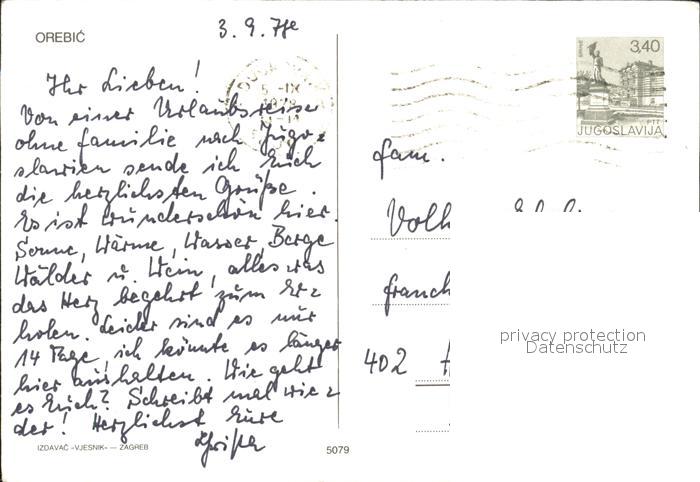 OREBIĆ
3. 9. 78
Ihr Lieben!
Von einer Urlaubsreise
ohne Familie nach Jugo=
slawien sende ich Euch
die herzlichsten Grüße.
Es ist wunderschön hier.
Sonne, Wärme, Wasser, Berge
Wälder u. Wein, alles was
das Herz begehrt zum Er=
holen. Leider sind es nur
14 Tage, ich könnte es länger
hier aushalten. Wie geht
es Euch? Schreibt mal wie=
der! Herzlichst Eure
IZDAVAČ »VJESNIK« — ZAGREB
5079
3,40
PTT
JUGOSLAVIJA
Fam.
Volk
franck
402
privacy protection
Datenschutz